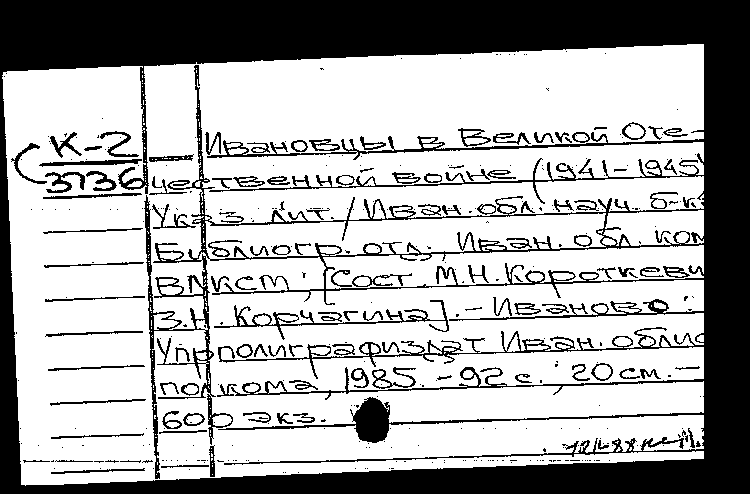 К-2
3736
Ивановцы в Великой Оте-
чественной войне (1941-1945
Указ. лит. / Иван. обл. науч. б-ка
Библиогр. отд., Иван. обл. ком
ВЛКСМ; [Сост. М.Н. Короткеви
З.Н. Корчагина]. - Иваново:
Упрполиграфиздат Иван. облис
полкома, 1985. - 92 с.; 20 см. -
600 экз.